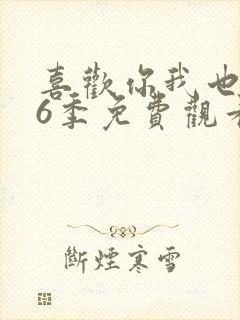 喜歡你我也
6季免費觀看
斷煙寒雪